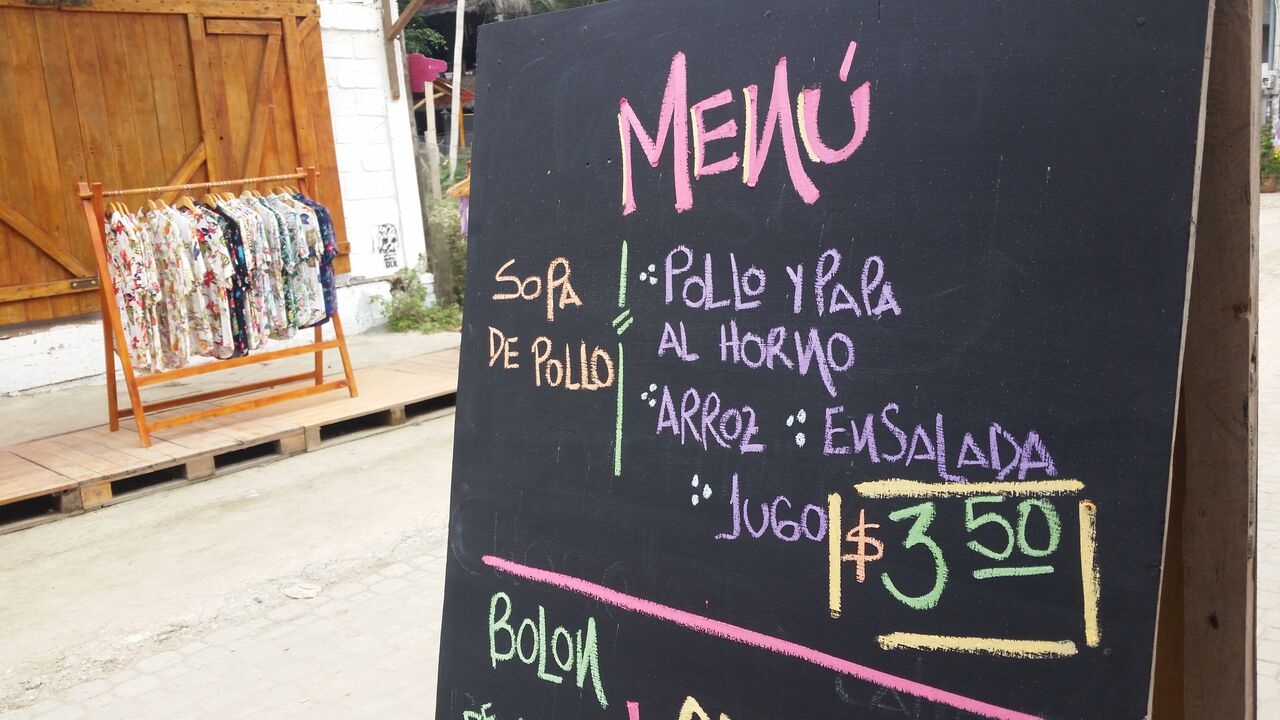 MENÚ
SOPA
DE POLLO
POLLO Y PAPA
AL HORNO
ARROZ ENSALADA
JUGO $3.50
BOLON
DE